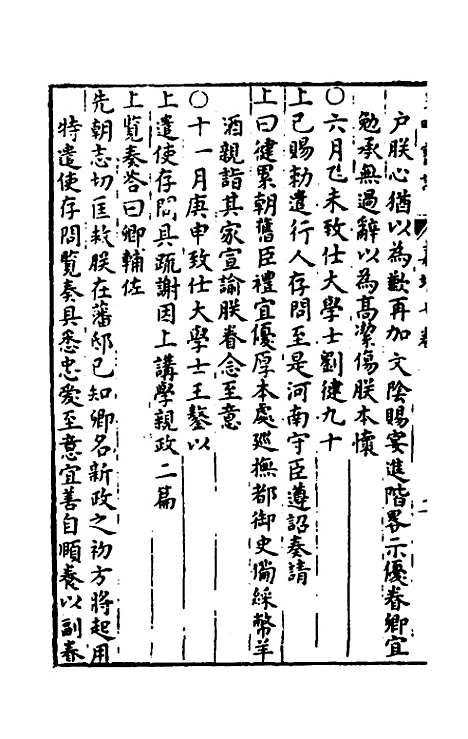 户朕心猶以為歉再加文陰賜宴進階畧示優眷卿宜
勉承無過辭以為高潔傷朕本懷
○六月乙未致仕大學士劉健九十
上已賜勑遣行人存問至是河南守臣遵詔奏請
上曰健累朝舊臣禮宜優厚本處廵撫都御史偹綵幣羊
酒親詣其家宣諭朕眷念至意
○十一月庚申致仕大學士王鏊以
上遣使存問具疏謝因上講學親政二篇
上覧奏答曰卿輔佐
先朝志切匡救朕在藩邸已知卿名新政之初方將起用
特遣使存問覧奏具悉忠愛至意宜善自頥養以副眷